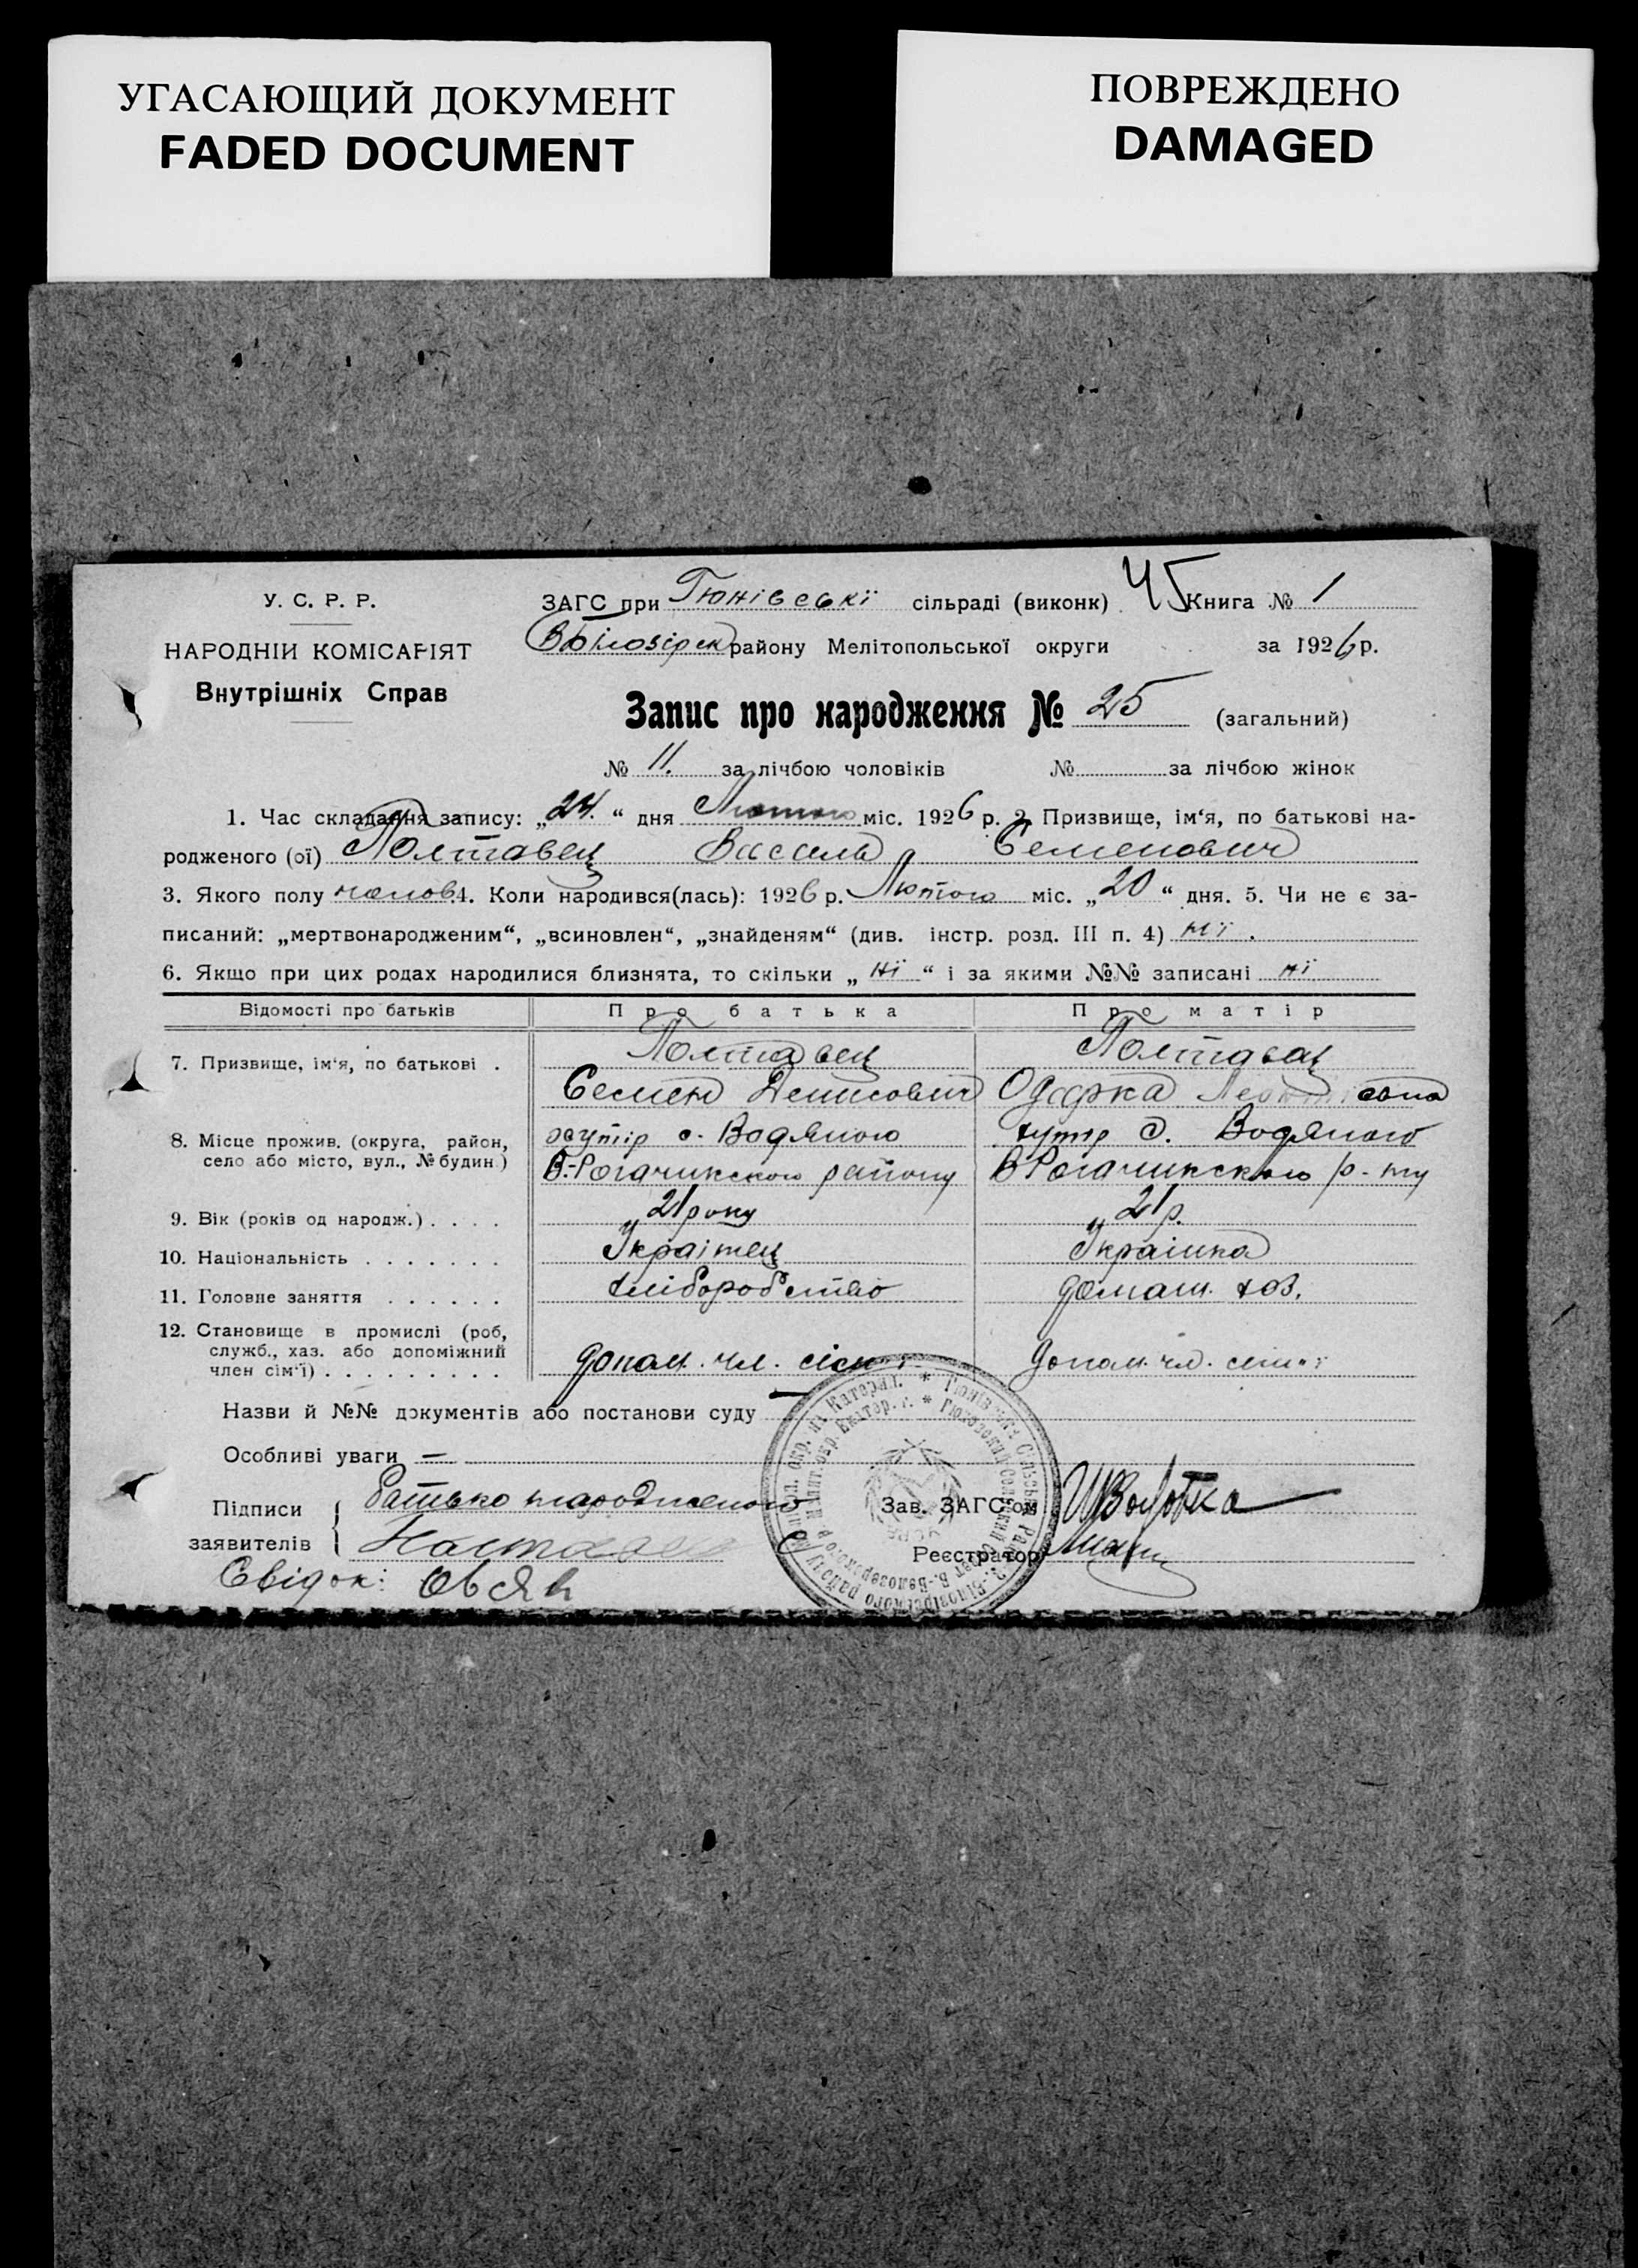 УГАСАЮЩИЙ ДОКУМЕНТ
FADED DOCUMENT
ПОВРЕЖДЕНО
DAMAGED
У. С. Р. Р.
НАРОДНІЙ КОМІСАРІЯТ
Внутрішніх Справ
ЗАГС при Гюнівські сільраді (виконк) 45 Книга № 1
В Білозірск району Мелітопольської округи за 1926 р.
Запис про народження № 25 (загальний)
№ 11. за лічбою чоловіків № за лічбою жінок
1. Час складання запису: „24.“ дня Лютого міс. 1926 р. 2. Призвище, ім‘я, по батькові на-
родженого (ої) Полтавец Василь Семенович
3. Якого полу чолов. 4. Коли народився(лась): 1926 р. Лютого міс. „20“ дня. 5. Чи не є за-
писаний: „мертвонародженим“, „всиновлен“, „знайденям“ (див. інстр. розд. III п. 4) ні.
6. Якщо при цих родах народилися близнята, то скільки „ні“ і за якими №№ записані ні
Відомості про батьків Про батька Про матір
7. Призвище, ім‘я, по батькові . Полтавец Полтавец
Семен Денисович Одарка
8. Місце прожив. (округа, район, хутір с. Водяного хутір с. Водяного
село або місто, вул., № будин.) В.-Рогачикского району В Рогачикского р-ну
9. Вік (років од народж.) . . . . „21 року „21 р.
10. Національність . . . . . . . Украінец Украінка
11. Головне заняття . . . . . . хліборобство домаш. хоз.
12. Становище в промислі (роб,
служб., хаз. або допоміжний
член сім‘ї) . . . . . . . . . допом. чл. сімї допом. чл. сімї
Назви й №№ документів або постанови суду —
Особливі уваги —
Підписи заявителів { батько народженого
Зав. ЗАГС‘ом
Реєстратор
Свідок: